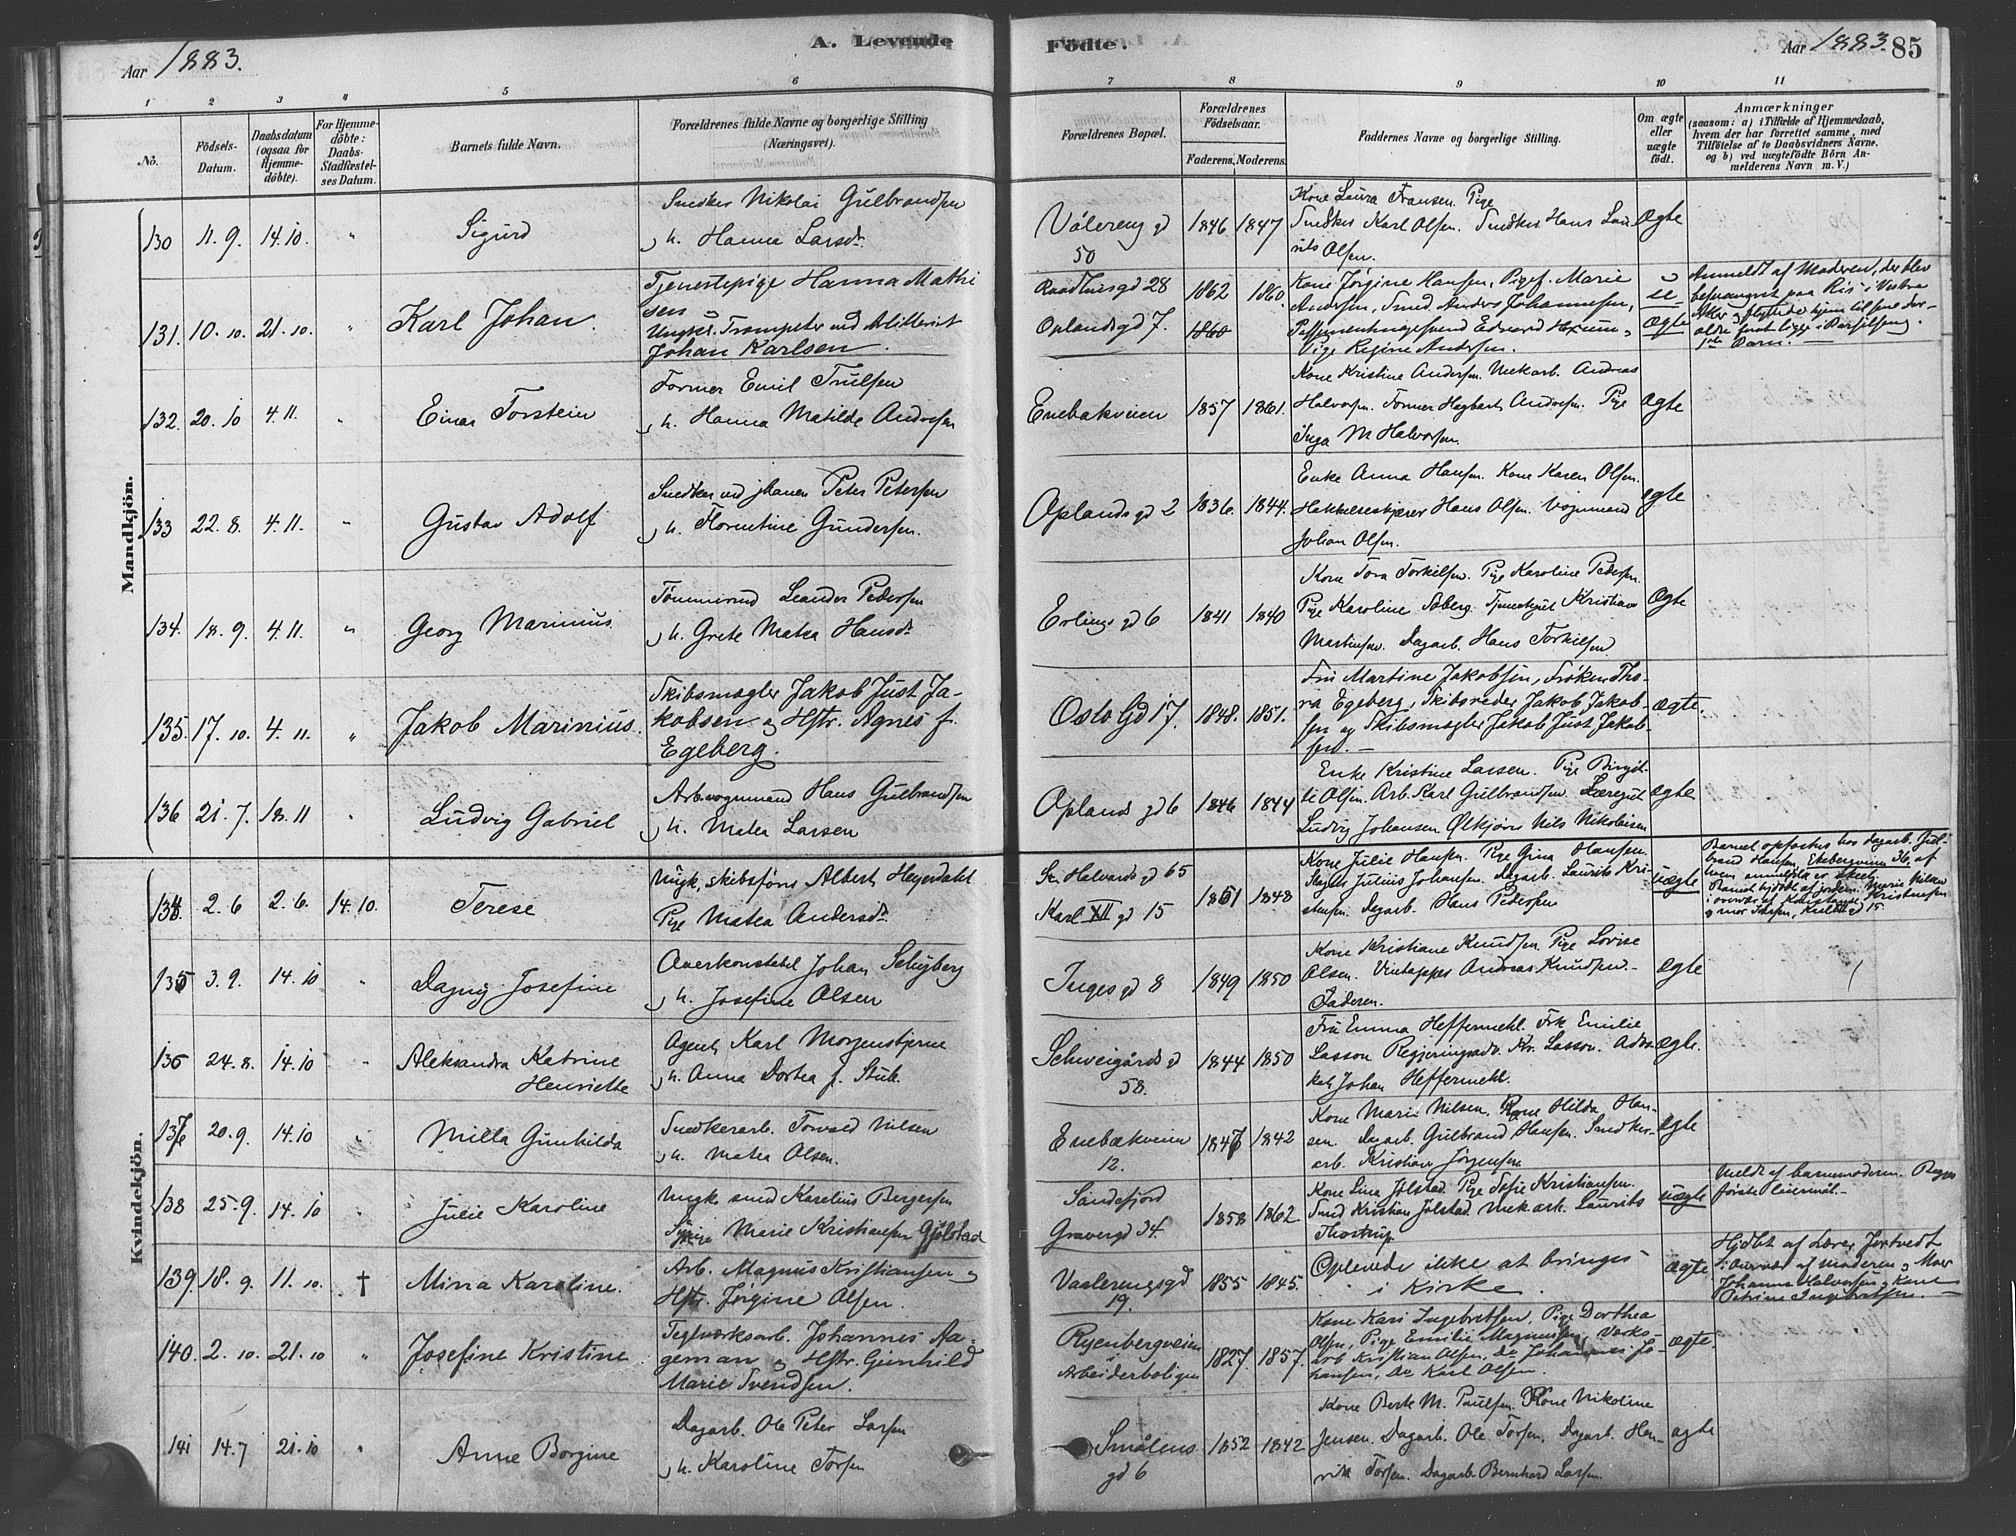 Aar 1883.
A. Levende
Födte.
Aar 1883.
85
1 2 3 4 5 6 7 8 9 10 11
No.
Födsels-
Datum.
Daabsdatum
(ogsaa for
Hjemme-
döbte).
For Hjemme-
döbte:
Daabs-
Stadfæstel-
ses Datum.
Barnets fulde Navn.
Forældrenes fulde Navne og borgerlige Stilling
(Næringsvei).
Forældrenes Bopæl.
Forældrenes
Födselsaar.
Faderens. Moderens.
Faddernes Navne og borgerlige Stilling.
Om ægte
eller
uægte
födt.
Anmærkninger
(saasom: a) i Tilfælde af Hjemmedaab,
hvem der har forrettet samme, med
Tilföielse af to Daabsvidners Navne.
og b) ved uægtefödte Börn An-
melderens Navn m. V.)
Mandkjön.
130 11.9. 14.10. " Sigurd
Snedker Nikolai Gulbrandsen
h. Hanna Larsd.
Vålereng gd
50
1846 1847
Kone Laura Fransen. Pige
Snedker Karl Olsen. Snedker Hans Lau-
rits Olsen.
Ægte
131. 10.10. 21.10. " Karl Johan.
Tjenestepige Hanna Mathi
sen
Ungkl. Trompeter ved Artilleriet
Johan Karlsen.
Raadhusgd 28
Oplandsgd 7.
1862 1860.
1860
Kone Jørgine Hansen, Marie
Andersen, Smed Anders Johannesen,
Edvard
Pige Regine Andersen.
u
ægte
Anmeldt af Moderen, der blev
besvangret paa Ris i Vestre
Aker og flyttede hjem til sine for-
ældre
1ste Barn.
132. 20.10 4.11. " Einar Torstein
Former Emil Trulsen
h. Hanna Matilde Andresen
Enebakveien
1857 1861.
Kone Kristine Andersen. Mekarb. Andreas
Halvorsen. Former Hagbart Andresen. Pige
Inga M Halvorsen.
Ægte
133 22.8. 4.11. " Gustav Adolf
Snedker ved Peter Petersen
h. Florentine Gundersen.
Oplands gd 2
1836. 1844.
Enke Anna Hansen. Kone Karen Olsen.
Hakkelsesskjærer Hans Olsen. Vognmand
Johan Olsen.
ægte
134. 18.9. 4.11. " Georg Marinius.
Tømmermd Leander Pedersen
h. Grete Matea Hansd.
Erlings gd 6
1841 1840
Kone Tora Torkilsen. Pige Karoline Pedersen.
Pige Karoline Soberg. Tjenestegut Kristian
Martinsen. Dagarb. Hans Torkilsen.
Ægte
135. 17.10. 4.11. " Jakob Marinius.
Skibsmægler Jakob Just Ja-
kobsen og Hstr. Agnes f.
Egeberg.
Oslo Gd 17.
1848. 1851.
Fru Martine Jakobsen, Frøken Tho-
ra Egeberg, Skibsreder Jakob Jakob-
sen og Skibsmægler Jakob Just Jakob-
sen.
ægte.
136 21.7. 18.11 " Ludvig Gabriel
Arb.vognmand Hans Gulbrandsen
h. Matea Larsen
Oplands gd 6
1846 1844
Enke Kristine Larsen. Pige Birgit-
te Olsen. Arb. Karl Gulbrandsen. Læregut
Ludvig Johansen Ølkjører Nils Nikolaisen
ægte
Kvindekjön.
134. 2.6 2.6. 14.10. Terese
Ungk. skibsfører Albert Heyerdahl
Pige Matea Andersd.
St. Halvards gd 65
Karl XII gd 15
1851 1848
Kone Julie Hansen. Pige Gina Hansen.
Slagter Julius Johansen. Dagarb. Laurits Kri-
stensen. Dagarb. Hans Pedersen
uægte
Barnet opfostres hos dagarb. Gul-
brand Hansen, Ekebergveien 36, af
hvem anmeldelse er skeet.
Barnet hjdøbt af jordem. Marie Nilsen
i overvær af Konstanse Kristensen
135 3.9. 14.10 " Dagny Josefine
Overkonstabel Johan Schyberg
h. Josefine Olsen
Inges gd 8
1849 1850
Kone Kristiane Knudsen Pige Lovise
Olsen. Vintapper Andreas Knudsen.
Faderen.
ægte
135 24.8. 14.10 " Aleksandra Katrine
Henriette
Agent Karl Morgenstjerne
h. Anna Dortea f. Stub.
Schweigårds gd
58.
1844 1850
Fru Emma Heffermehl. Frk Emilie
Lasson Regjeringsadv. Kr. Lasson. Advo-
kat Johan Heffermehl.
ægte.
136 20.9. 14.10 " Milla Gunhilda
Snedkerarb. Torvald Nilsen
h. Matea Olsen.
Enebækveien
12.
1847 1842
Kone Marie Nilsen. Kone Hilda Han-
sen. Dagarb. Gulbrand Hansen. Snedker-
arb. Kristian Jørgensen
ægte
138 25.9. 14.10 " Julie Karoline
Ungk. smed Karelius Bergersen
Sypige Marie Kristiansen Gjølstad
Sandefjord
Gravergd 34.
1858 1862
Kone Lina Jølstad. Pige Sofie Kristiansen.
Smed Kristian Jølstad Mekarb. Laurits
Thostrup
uægte
Meldt af barnemoderen. Begges
første leiermål.
139. 18.9. 11.10. † Minna Karoline.
Arb. Magnus Kristiansen og
Hstr. Jørgine Olsen.
Vaalerengsgd
19.
1855 1845.
Oplevede ikke at bringes
i Kirke.
ægte
Hjdbt af Lærer Jortvedt
i Overvær af Moderen og Mor
Johanne Halvorsen og Kone
Petrine Ingebretsen.
140. 2.10. 21.10 " Josefine Kristine
Teglværksarb. Johannes Aa-
geman og Hstr. Gunhild
Marie Svendsen.
Ryenbergveien
Arbeiderboligen
1827. 1857.
Kone Kari Ingebretsen, Pige Dorthea
Olsen, Pige Emilie Magnussen, Værks-
arb Kristian Olsen, Do Johannes Jo-
hansen, Do Karl Olsen.
ægte.
141 14.7 21.10 " Anne Borgine
Dagarb. Ole Peter Larsen
h. Karoline Torsen
Smålens
gd 6
1852 1842
Kone Berte M. Paulsen. Kone Nikoline
Jensen. Dagarb. Ole Torsen. Dagarb. Hen-
rik Torsen. Dagarb. Bernhard Larsen.
ægte